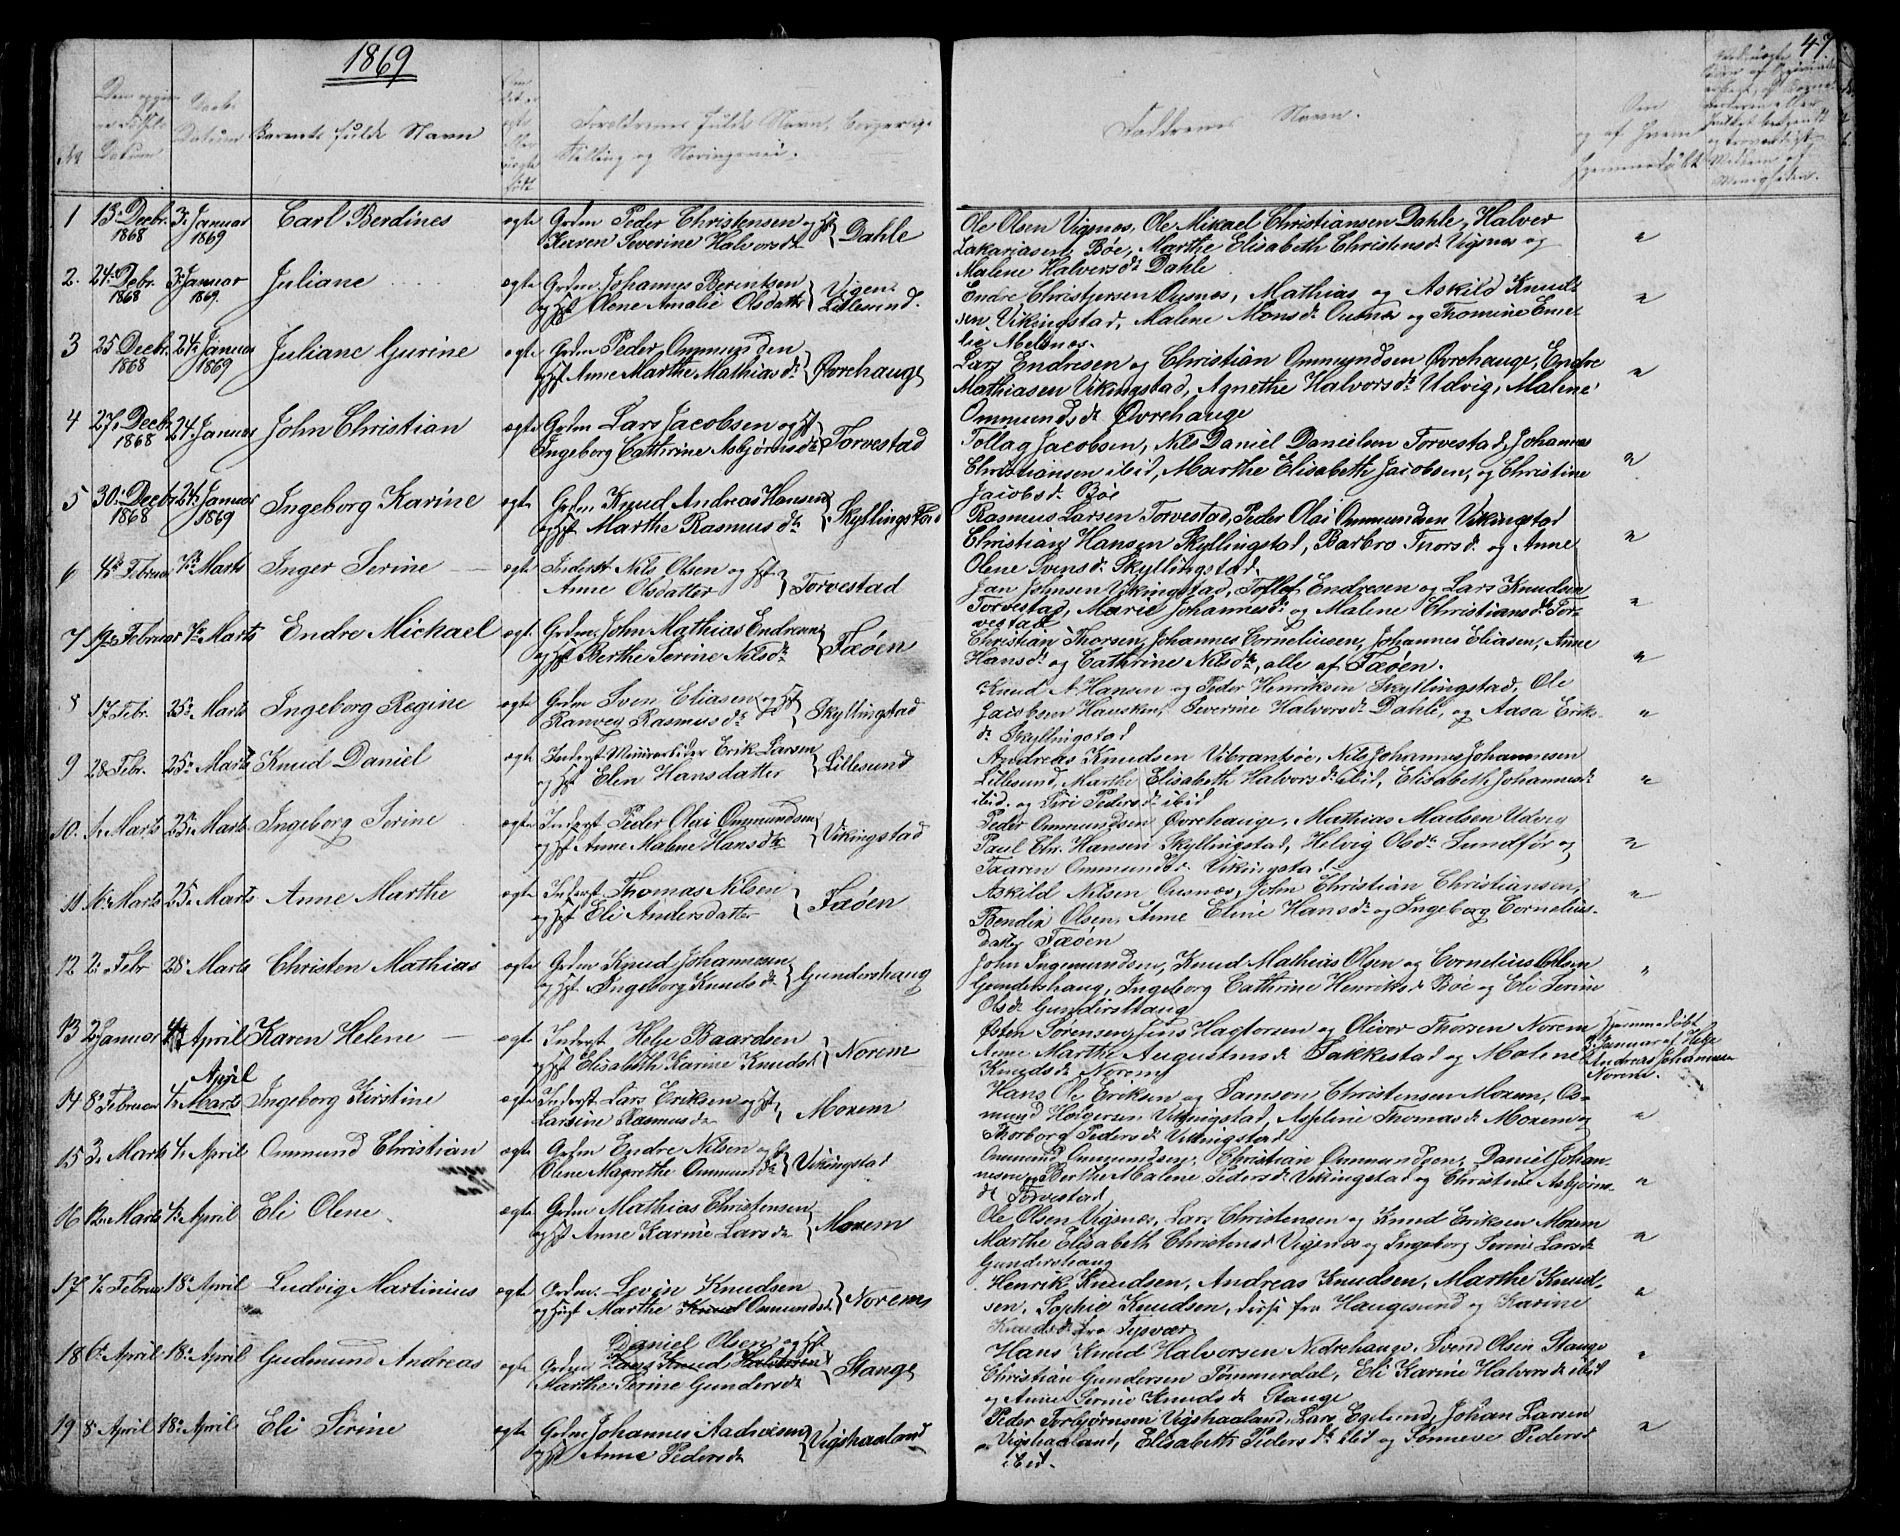 1869
47.
No
Datum
Daabs Datum
Barnets fulde Navn
Forældrenes fulde Navn, borgerlige
Stilling og Næringsvei.
Faddrenes Navn.
Om og af Hvem Hjemmedøbt
1 13de Decbr. 1868 3die Januar 1869 Carl Berdines ægte Grdm Peder Christensen og Hst
Karen Severine Halvorsdtr } Dahle
Ole Olsen Vigsnes, Ole Mikael Christiansen Dahle, Halver
Zakariasen Bøe, Marthe Elisabeth Christensdtr Vigsnes og
Malene Halversdtr Dahle "
2. 24de Decbr. 1868 3die Januar 1869. Juliane ægte Grdm. Johannes Berentsen
og Hst Olene Amalie Olsdatter } Lillesund.
Endre Christjersen Ousnæs, Mathias og Askild Knud-
sen Vikingstad, Malene Monsdtr Ousnæs og Thomine Eme-
lie Melsnæs. "
3 25 Decbr. 1868 24de Januar 1869 Juliane Gurine ægte Grdm Peder Ommundsen
og Hst Anne Marthe Mathiasdtr } Øvrehauge
Lars Endresen og Christian Ommundsen Øvrehauge, Endre
Mathiasen Vikingstad, Agnethe Halvorsdtr Udvig, Malene
Ommundsdtr Øvrehauge "
4 27de Decbr 1868 24de Januar John Christian ægte Grdm Lars Jacobsen og Hst
Ingeborg Cathrine Asbjørnsdtr } Torvestad
Tollag Jacobsen, Nils Daniel Danielsen Torvestad, Johannes
Christiansen ibid, Marthe Elisabeth Jacobsen, og Christine
Jacobsdtr Bøe "
5 30de Decbr 1868 24de Januar 1869 Ingeborg Karine ægte Grdm Knud Andreas Hansen
og Hst Marthe Rasmusdtr } Skyllingstad
Rasmus Larsen Torvestad, Peder Olai Ommundsen Vikingstad
Christian Hansen Skyllingstad, Barbro Thorsdtr og Anne
Olene Svensdtr Skyllingstad. "
6 4de Februar 7de Marts Inger Serine ægte Inderst Nils Olsen og Hst
Anne Olsdatter } Torvestad
Jan Johnsen Vikingstad, Tollef Endresen og Lars Knudsen
Torvestad, Marie Johannesdtr og Malene Christiansdtr Tor-
vestad "
7 19de Februar 7de Marts Endre Mickael ægte Grdm. John Mathias Endresen
og Hst Berthe Serine Nilsdtr } Fæøen
Christian Thorsen, Johannes Corneliusen, Johannes Eliasen, Anne
Hansdtr og Cathrine Nilsdtr, alle af Fæøen. "
8 17 Febr. 25de Marts Ingeborg Regine ægte Grdm Sven Eliasen og Hst
Ranvey Rasmusdtr } Skyllingstad
Knud A Hansen og Peder Henriksen Skyllingstad, Ole
Jacobsen Hausken, Severine Halvorsdtr Dahle, og Aasa Eriks-
dtr Skyllingstad "
9 28 Febr. 25de Marts Knud Daniel ægte Inderst Erik Larsen
og Hst Elen Hansdatter } Lillesund
Andreas Knudsen Vibrandsøe, Nils Johannes Johannesen
Lillesund, Marthe Elisabeth Halvorsdtr ibid, Elisabeth Johannesdtr
ibid. og Siri Pedersdtr ibid "
10. 1 Marts 25de Marts Ingeborg Serine ægte Inderst Peder Olai Ommundsen
og Hst Anne Malene Hansdtr } Vikingstad
Peder Ommundsen Øvrehauge, Mathias Madsen Udvig
Paul Chr. Hansen Skyllingstad, Helvig Olsdtr Sundfør og
Taaren Ommundsdtr Vikingstad "
11 16de Marts 25 Marts Anne Marthe ægte Inderst Thomas Nilsen
og Hst Eli Andersdatter } Fæøen
Askild Nilsen Ousnæs, John Christian Christiansen,
Bendix Olsen, Anne Eline Hansdtr og Ingeborg Cornelius-
datter Fæøen "
12 2 Febr 28 Marts Christen Mathias ægte Grdm Knud Johannesen
og Hst Ingeborg Knudsdtr } Gundershaug
John Ingemundsen, Knud Mathias Olsen og Cornelius Olsen
Gundershaug, Ingeborg Cathrine Henriksdtr Bøe og Eli Serine
Olsdtr Gundershaug "
13 2 Januar 4de April Karen Helene ægte Inderst Helge Baardsen
og Hst Elisabeth Karine Knudsdtr } Norem
Østen Sørensen, Jens Hagtorsen og Oliver Thorsen Norem
Anne Marthe Augustinusdtr Sakkestad og Malene
Knudsdtr Norem
Hjemmedøbt
Januar af Helge
Andreas Johannesen
Norem.
14 8de Februar April
4de Marts Ingeborg Kirstine ægte Inderst Lars Eriksen og Hst
Larsine Rasmusdtr } Moxem
Hans Ole Eriksen og Samson Christensen Moxem, Os-
mund Holgersen Vikingstad, Aseline Thomasdtr Moxem og
Thorborg Pedersdtr Vikingstad "
15 3de Marts 4de April Ommund Christian ægte Grdm Endre Nilsen og Hst
Olene Magrethe Ommundsdtr } Vikingstad
Ommund Ommundsen, Christian Ommundsen, Daniel Johan-
nesen og Berthe Malene Pedersdtr Vikingstad og Christine Asbjørns-
dtr Torvestad "
16 12de Marts 4de April Eli Olene ægte Grdm Mathias Christensen
og Hst Anne Karine Larsdtr } Moxem
Ole Olsen Vigsnæs, Lars Christensen og Knud Eriksen Moxem
Marthe Elisabeth Christensd Vigsnæs og Ingeborg Serine Larsdtr
Gundershaug "
17 7de Februar 18de April Ludvig Martinius ægte Grdm. Levin Knudsen
og Hust Marthe Knud Ommundsdtr } Norem
Henrik Knudsen, Andreas Knudsen, Marthe Knud-
sen, Sophie Knudsen, disse fra Haugesund og Karine
Knudsdtr fra Tysvær "
18 6te April 18de April Gudmund Andreas ægte Daniel Olsen og Hst
Grdm Hans Knud Halvorsen
Marthe Serine Gundersdtr } Stange
Hans Knud Halvorsen Nedrehauge, Svend Olsen Stange
Christian Gundersen Tømmerdal, Eli Karine Halvorsdtr ibid
og Anne Serine Knudsdtr Stange "
19 8 April 18de April Eli Serine ægte Grdm Johannes Andreasen
og Hst Anne Pedersdtr } Vigshaaland
Peder Torbjørnsen Vigshaaland, Lars Egelund, Johan Larsen
Vigshaaland, Elisabeth Pedersdtr ibid og Sønneve Pedersd
ibid. "